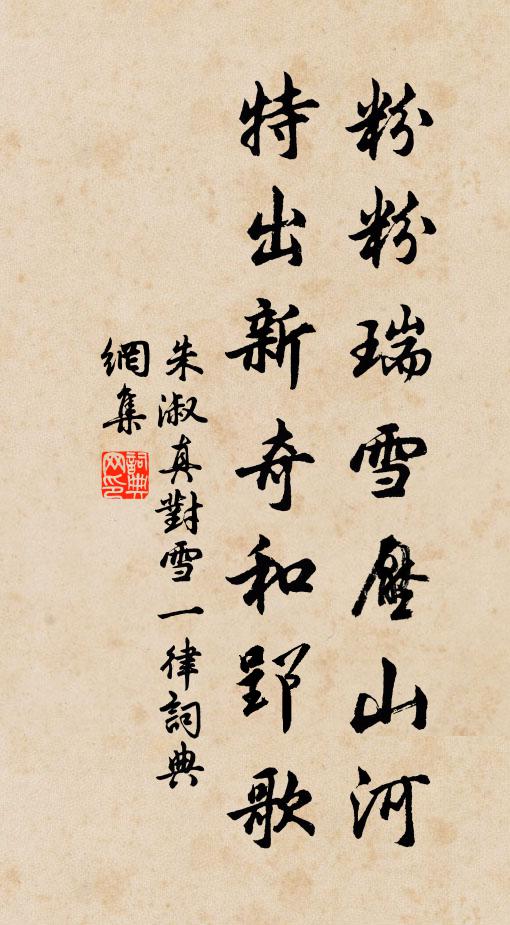 粉粉瑞雪壓山河
特出新奇和郢歌
朱淑真對雪一律詞典
網集
詞典
网印